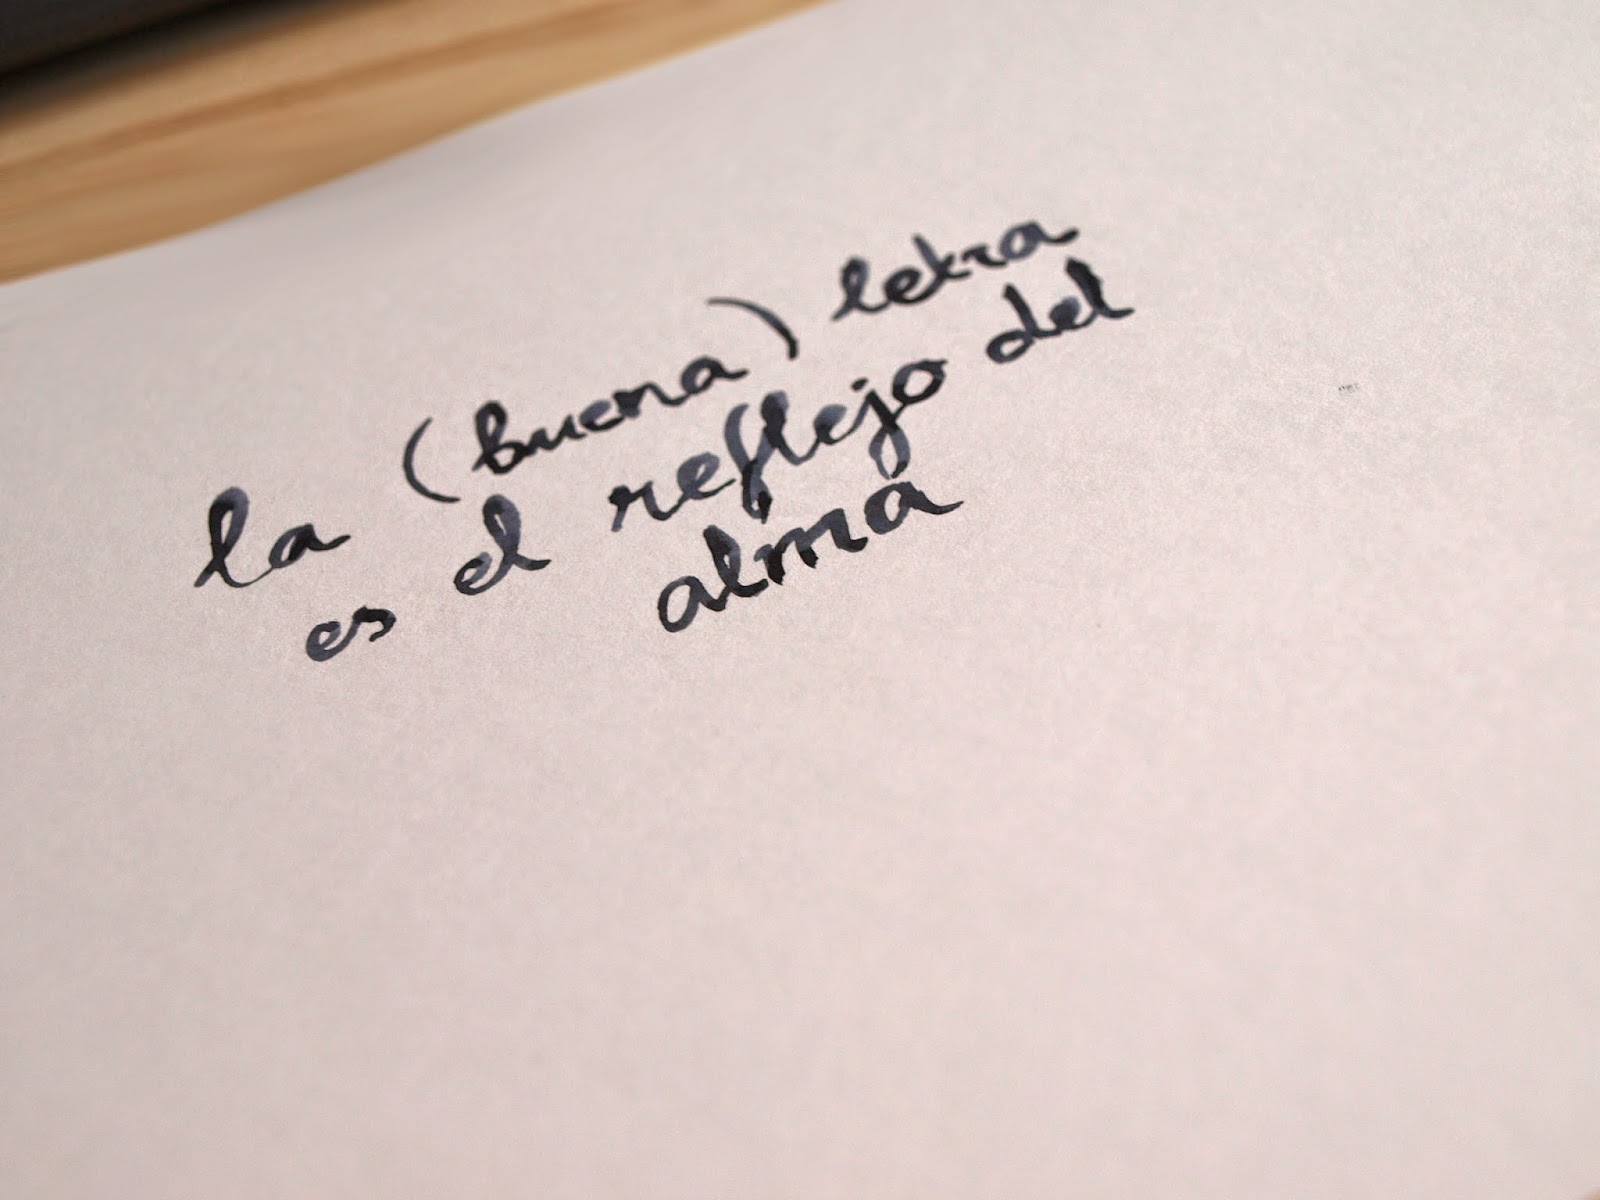 la (buena) letra
es el reflejo del
alma